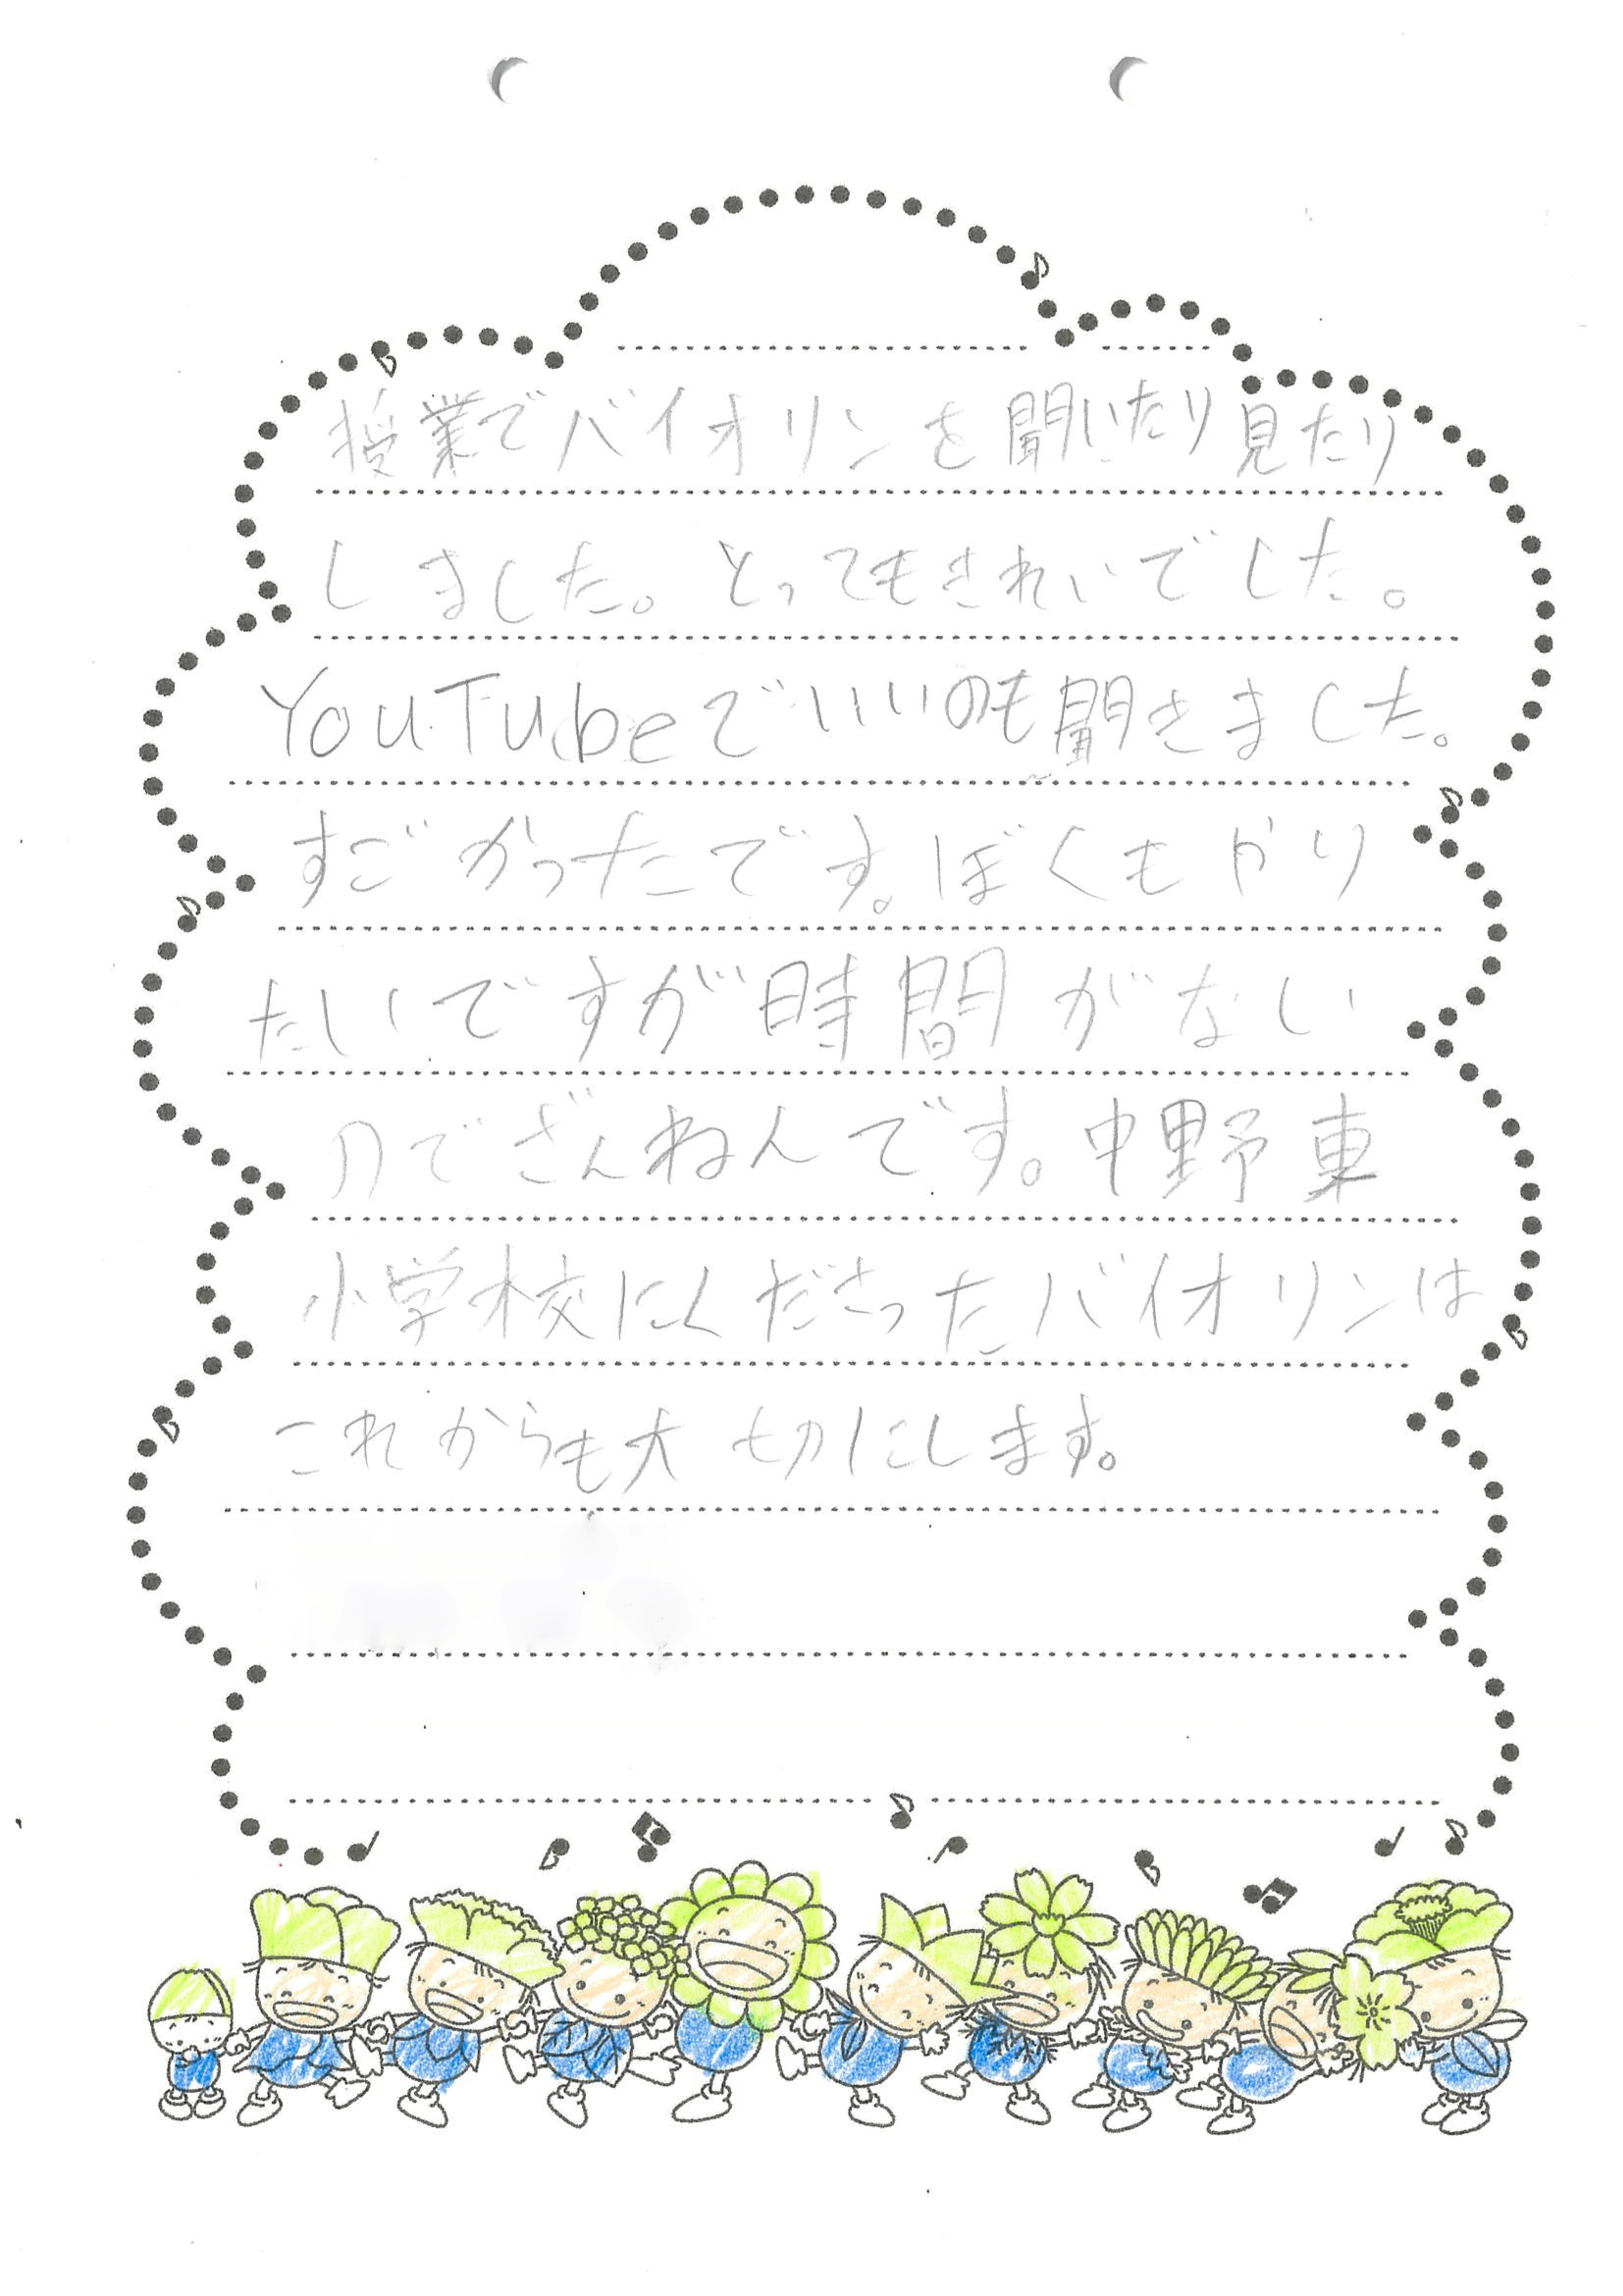 授業でバイオリンを聞いたり見たり
しました。とってもきれいでした。
YouTubeでいいのも聞きました。
すごかったです。ぼくもやり
たいですが時間がない
のでざんねんです。中野東
小学校にくださったバイオリンは
これからも大切にします。